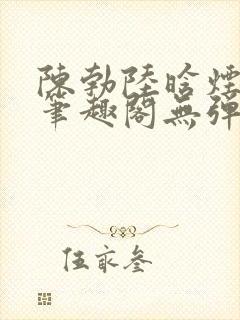 陳勃陸晗煙
筆趣閣無彈
伍家叁